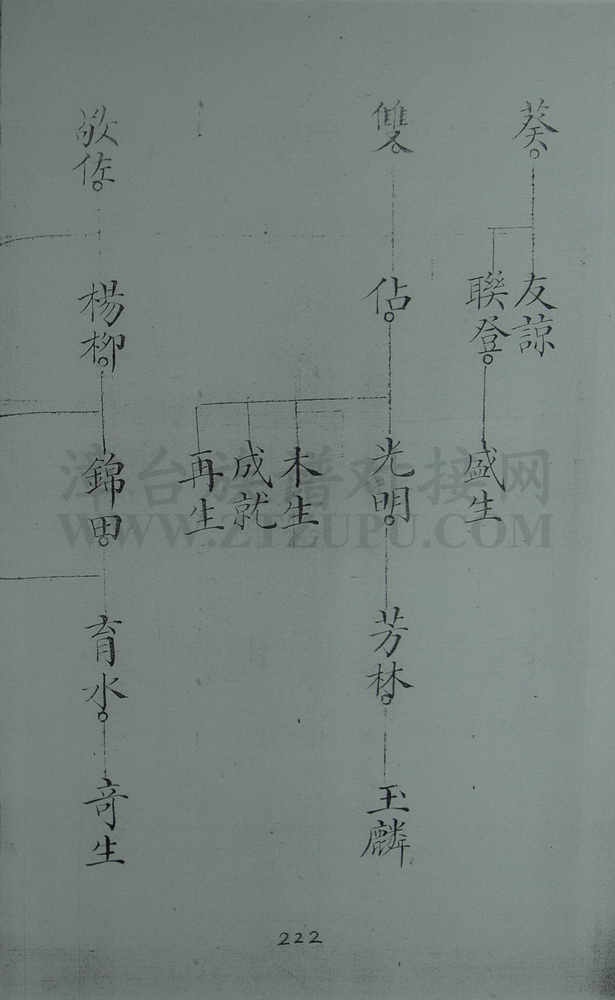 葵
友諒
聯登
盛生
雙
佔
光明
木生
成就
再生
芳林
玉麟
敬佐
楊柳
錦田
育水
奇生
漳台族谱对接网
WWW.ZTZUPU.COM
222